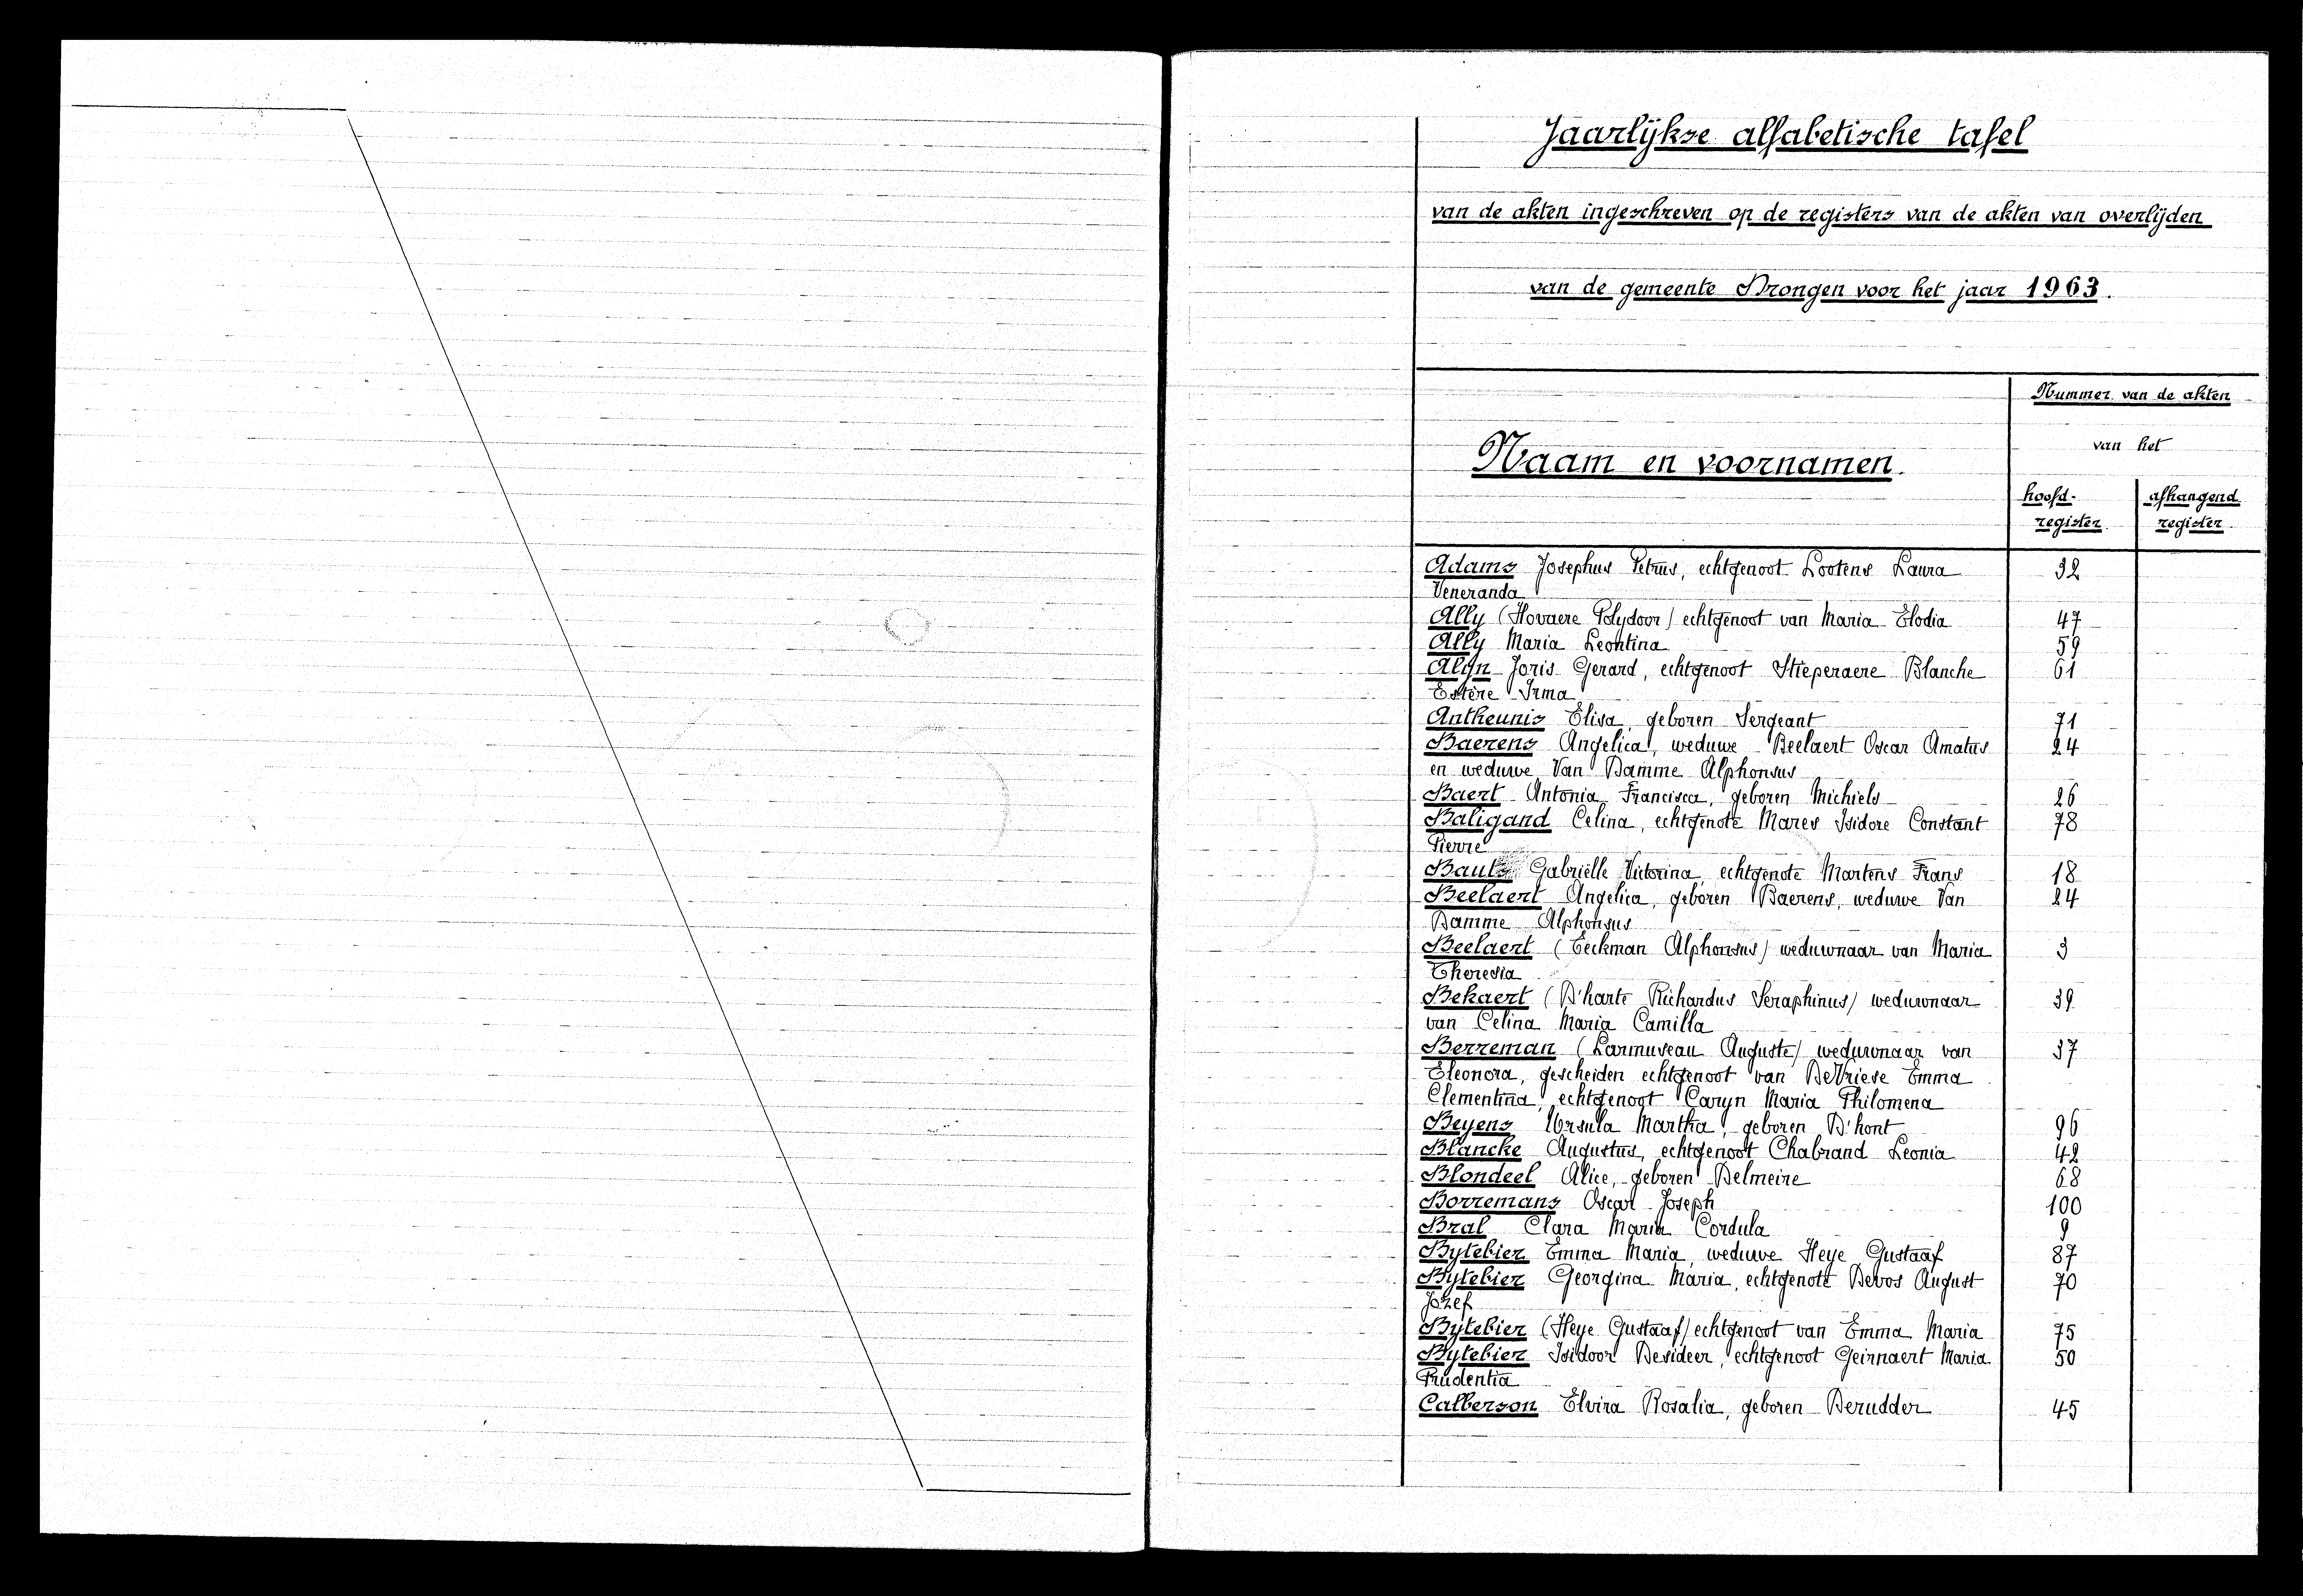 Jaarlijkse alfabetische tafel
van de akten ingeschreven op de registers van de akten van overlijden
van de gemeente Drongen voor het jaar 1963.
Nummer van de akten
van het
Naam en voornamen.
hoofd- afhangend
register. register.
Adams Josephus Petrus, echtgenoot Lootens Laura 32
Veneranda
Ally (Hovaere Polydoor) echtgenoot van Maria Elodia 47
Ally Maria Leontina 59
Alijn Joris Gerard, echtgenoot Stieperaere Blanche 61
Estère Irma
Antheunis Elisa, geboren Sergeant 71
Baerens Angelica, weduwe Beelaert Oscar Amatus 24
en weduwe Van Damme Alphonsus
Baert Antonia Francisca, geboren Michiels 26
Baligand Celina, echtgenote Mares Isidore Constant 78
Pierre
Bauts Gabriëlle Victorina, echtgenote Martens Frans 18
Beelaert Angelica, geboren Baerens, weduwe Van 24
Damme Alphonsus
Beelaert (Eeckman Alphonsus) weduwnaar van Maria 3
Theresia
Bekaert (D'harte Richardus Seraphinus) weduwnaar 39
van Celina Maria Camilla
Berreman (Larmuseau Auguste) weduwnaar van 37
Eleonora, gescheiden echtgenoot van DeVriese Emma
Clementina, echtgenoot Caryn Maria Philomena
Beyens Ursula Martha, geboren D'hont 96
Blancke Augustus, echtgenoot Chabrand Leonia 42
Blondeel Alice, geboren Delmeire 68
Borremans Oscar Joseph 100
Bral Clara Maria Cordula 9
Bytebier Emma Maria, weduwe Heye Gustaaf 87
Bytebier Georgina Maria, echtgenote Devos August 70
Jozef
Bytebier (Heye Gustaaf) echtgenoot van Emma Maria 75
Bytebier Isidoor Desideer, echtgenoot Geirnaert Maria 50
Prudentia
Calberson Elvira Rosalia, geboren Derudder 45